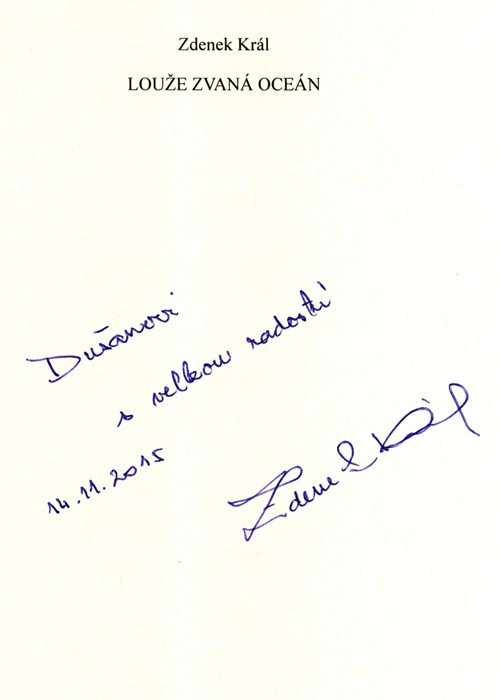 Zdenek Král
LOUŽE ZVANÁ OCEÁN
Dušanovi
s velkou radostí
14.11.2015
Zdenek Král